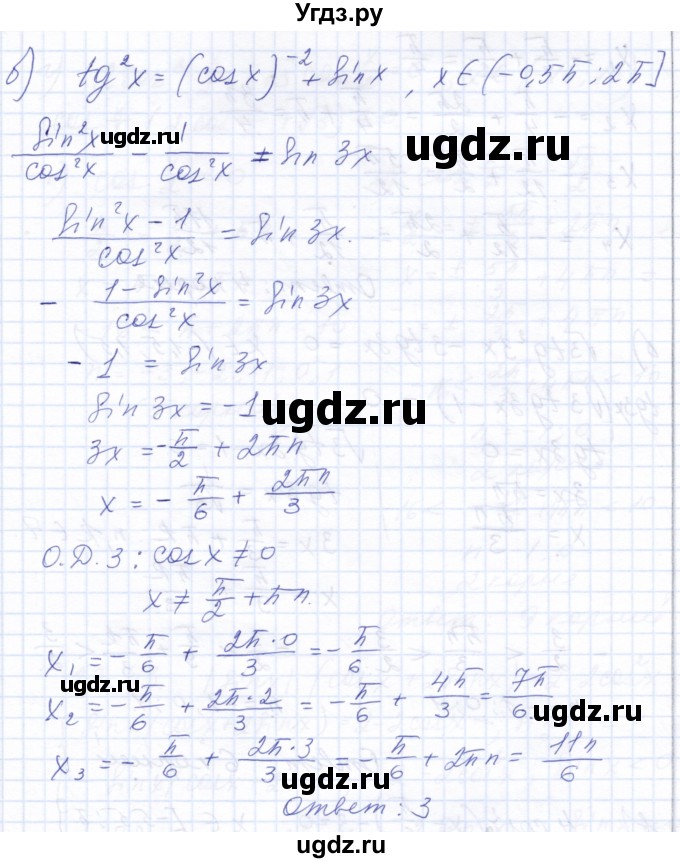 Угдз.ру
б) tg²x = (cos x)⁻² + sin x , x ∈ (-0,5π ; 2π]
sin²x/cos²x - 1/cos²x = sin 3x
ugdz.ru ugdz.ru
(sin²x - 1)/cos²x = sin 3x.
- (1 - sin²x)/cos²x = sin 3x
ugdz.ru
- 1 = sin 3x
sin 3x = -1
ugdz.ru
3x = -π/2 + 2πn
x = - π/6 + 2πn/3
ugdz.ru
О.Д.З : cos x ≠ 0
x ≠ π/2 + πn.
x₁ = - π/6 + 2π·0/3 = - π/6
ugdz.ru
x₂ = - π/6 + 2π·2/3 = - π/6 + 4π/3 = 7π/6
ugdz.ru
x₃ = - π/6 + 2π·3/3 = - π/6 + 2πn = 11π/6
ugdz.ru
Ответ : 3
ugdz.ru